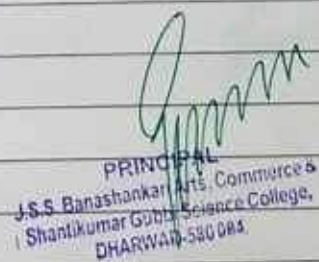 PRINCIPAL
J.S.S. Banashankari Arts, Commerce &
Shantikumar Gubbi Science College,
DHARWAD-580 004.